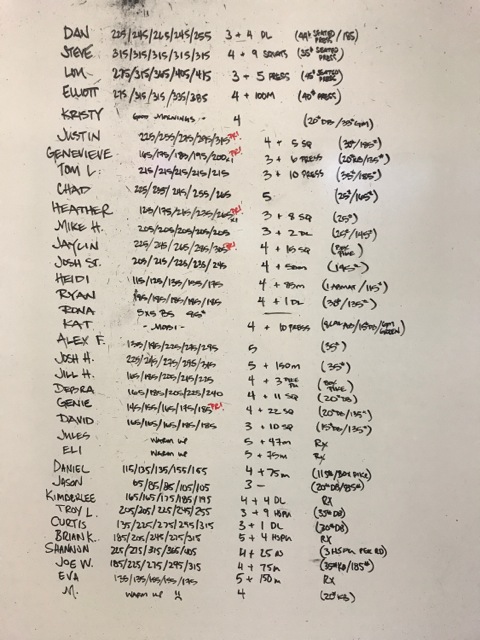 DAN 225/245/265/245/255 3 + 4 DL (44# SEATED PRESS /185)
STEVE 315/315/315/315/315 4 + 9 SQUATS (35# SEATED PRESS)
LIM 275/315/365/405/415 3 + 5 PRESS (45# SEATED PRESS)
ELLIOTT 275/315/315/335/385 4 + 100M (40# PRESS)
KRISTY GOOD MORNINGS - 4 (20# DB /35#)
JUSTIN 225/255/275/295/315 PR! 4 + 5 SQ (30#/185#)
GENEVIEVE 165/175/185/195/200 PR! 3 + 6 PRESS (20#KB/135#)
TOM L. 215/215/215/215/215 3 + 10 PRESS (35#/185#)
CHAD 205/235/245/255/265 5 (25#/165#)
HEATHER 125/175/215/235/265 PR! x1 3 + 8 SQ (25#)
MIKE H. 205/205/205/205/205 3 + 2 DL (25#/145#)
JAYLIN 225/245/265/285/305 PR! 4 + 15 SQ
JOSH ST. 205/215/225/235/245 4 + 50m (195#)
HEIDI 115/125/135/155/175 4 + 85m (1 ABMAT /115#)
RYAN 185/185/185/185/185 4 + 1 DL (30#/135#)
RONA 5x5 BS 95#
KAT - MOBI - 4 + 10 PRESS
ALEX F. 135/185/225/275/295 5 (35#)
JOSH H. 225/245/275/295/315 5 + 150m (35#)
JILL H. 165/185/205/215/225 4 + 3
DEBRA 165/185/205/225/240 4 + 11 SQ (20#DB)
GENIE 145/155/165/175/185 PR! 4 + 22 SQ (20#DB/135#)
DAVID 165/165/165/185/185 3 + 10 SQ (15#DB/135#)
JULES WARM UP 5 + 47m Rx
ELI WARM UP 5 + 75m Rx
DANIEL 115/135/135/155/165 4 + 75m
JASON 65/85/85/105/105 3 - (20#DB/85#)
KIMBERLEE 165/165/175/185/195 4 + 4 DL Rx
TROY L. 205/205/225/245/255 3 + 9 HSPU (35#DB)
CURTIS 135/225/275/295/315 3 + 1 DL (30#DB)
BRIAN K. 185/205/245/275/315 5 + 4 HSPU Rx
SHANNON 225/275/315/365/405 4 + 25 m (3 HSPU PER RD)
JOE W. 185/225/275/295/315 4 + 75m (35#KB/185#)
EVA 135/135/155/155/175 5 + 150m Rx
M. WARM UP 4 (20#KB)